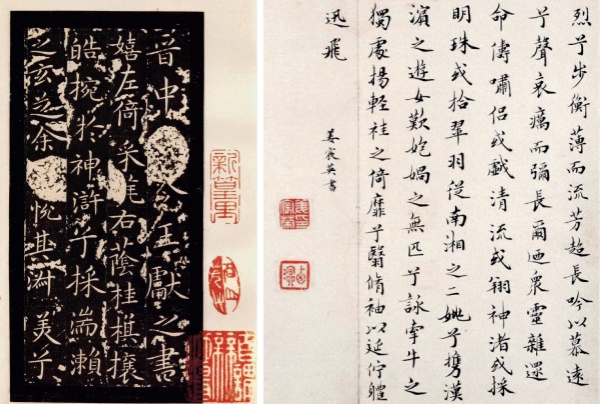 烈兮步衡薄而流芳超長吟以慕遠
兮聲哀癘而彌長爾迺衆靈雜遝
命儔嘯侶或戲清流或翔神渚或採
明珠或拾翠羽從南湘之二姚兮攜漢
濱之遊女歎匏媧之無匹兮詠牽牛之
獨處揚輕袿之倚靡兮翳脩袖以延佇體
迅飛
姜宸英書
晉中令王獻之書
嬉左倚采旄右蔭桂旗攘
皓椀於神滸兮採湍瀨
之玄芝余悅其淑美兮